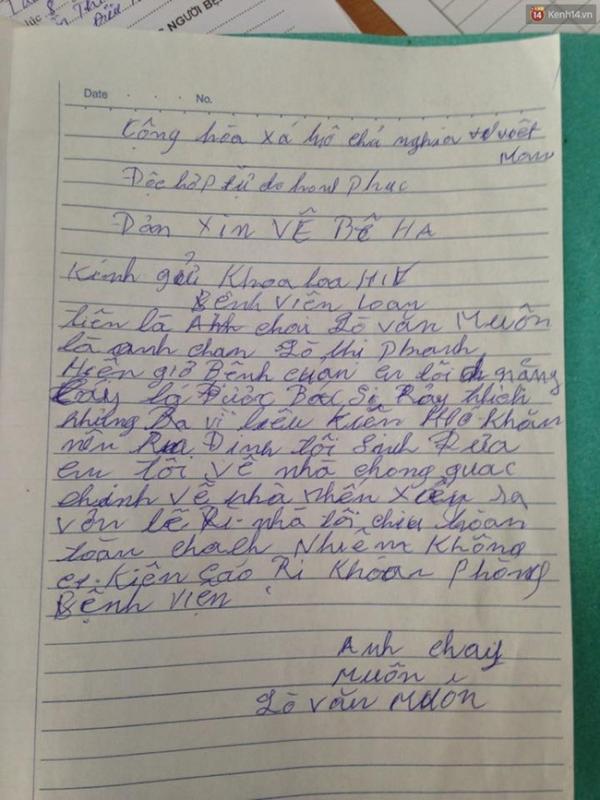 14 Kenh14.vn
NGƯỜI BỆ
Date No.
Cộng hòa xá hộ chủ nghia việt
Mam
Độc hập tự do hanh Phuc
Đản XIN VỀ BỀ HA
Kính gửi Khoa HIV
Bệnh viên Loan
tiên là Anh chai Lò văn Muôn
là anh chan Lò thi Phanh
Hiên giờ Bệnh cuản em tôi đ nặng
lá Được Bác Si Rảy thich
nhưng Ra vì liêu Kiên Khố Khăn
nên Rua Đinh tôi Sinh Đưa
em tôi về nhà chong quac
chinh về nhà nhến Xảy ra
vớn lề Ri nhà tôi chiu hoan
toàn chach Nhiêm Không
Kiên Cáo Ri Khoan Phòng
Bệnh viện
Anh chay
Muôn
Lò văn Muôn